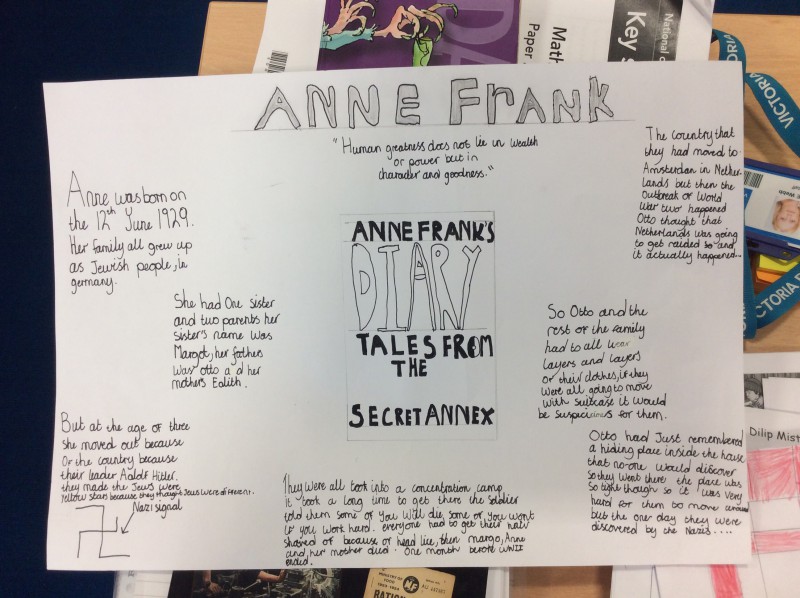 ANNE FRANK
"Human greatness does not lie in wealth
or power but in
character and goodness."
Anne was born on
the 12th June 1929.
Her family all grew up
as Jewish people, in
germany.
She had One sister
and two parents her
sister's name was
Margot, her fathers
was otto a d her
mothers Edith.
But at the age of three
she moved out because
of the country because
their leader Adolf Hitler.
they made the Jews were
yellow stars because they thought Jews were different.
Nazi signal
ANNE FRANK'S
DIARY
TALES FROM
THE
SECRET ANNEX
They were all took into a concentration camp
it took a long time to get there the soldier
told them some of you will die, some of you wont
if you work hard. everyone had to get their hair
shaved of because of head lice, then margo, Anne
and, her mother died. One month before WWII
ended.
The country that
they had moved to
Amsterdan in Nether-
lands but then the
Outbreak of World
War two happened
Otto thought that
Netherlands was going
to get raided so and
it actually happened...
So Otto and the
rest of the family
had to all wear
layers and layers
of their clothes, if they
were all going to move
with suitcase it would
be suspicious for them.
Otto had Just remembered
a hiding place inside the house
that no-one would discover
so they went there the place was
so tight though so it was very
hard for them to move around
but the one day they were
discovered by the Nazis....
National
Key
Math
Paper
VICTORIA
VICTORIA
Dilip Mist
MINISTRY OF
FOOD
RATION